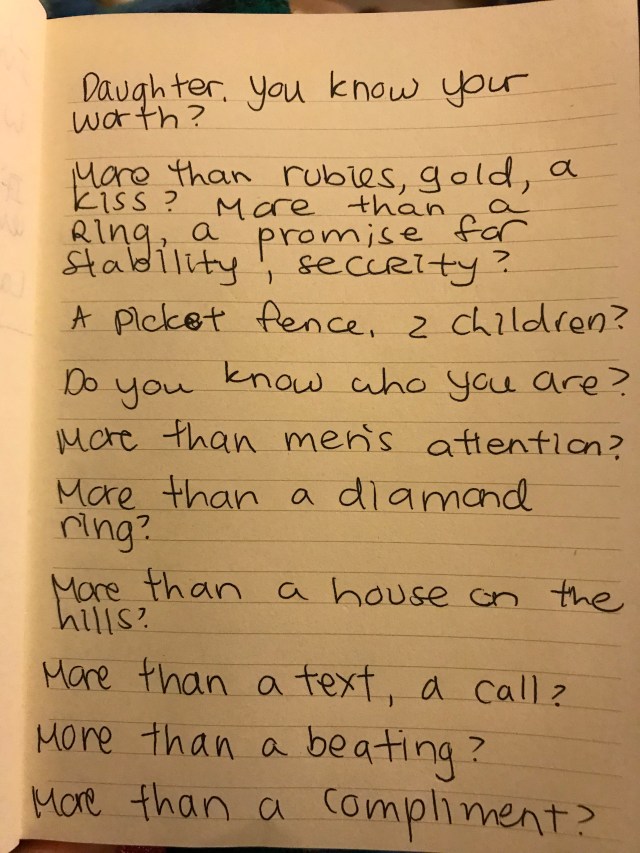 Daughter, you know your
worth?
More than rubies, gold, a
kiss? More than a
Ring, a promise for
stability, security?
A picket fence, 2 children?
Do you know who you are?
More than men's attention?
More than a diamond
ring?
More than a house on the
hills?
More than a text, a call?
More than a beating?
More than a compliment?